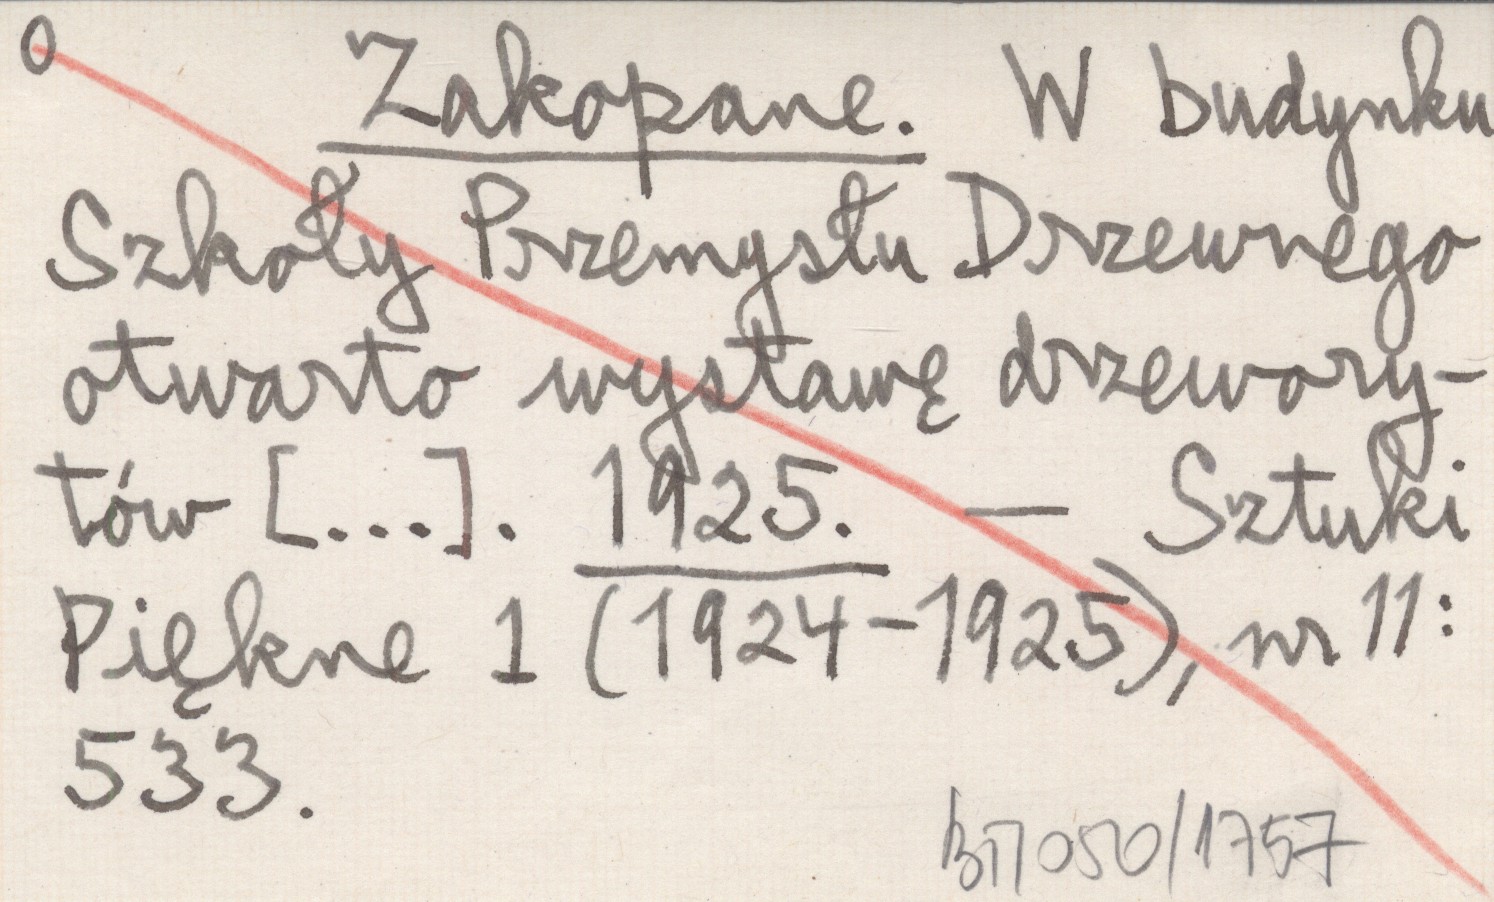 0 Zakopane. W budynku
Szkoły Przemysłu Drzewnego
otwarto wystawę drzewory-
tów [...]. 1925. — Sztuki
Piękne 1 (1924-1925), nr 11:
533.
050/1757